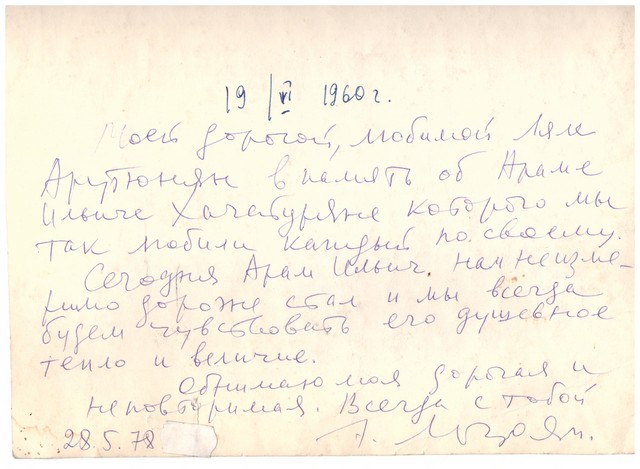 19/VI 1960г.
Моей дорогой, любимой Ляле
Арутюнян в память об Араме
Ильиче Хачатуряне которого мы
так любили каждый по своему.
Сегодня Арам Ильич нам неизме-
римо дороже стал и мы всегда
будем чувствовать его душевное
тепло и величие.
Обнимаю моя дорогая и
неповторимая. Всегда с тобой
28.5.78 А.